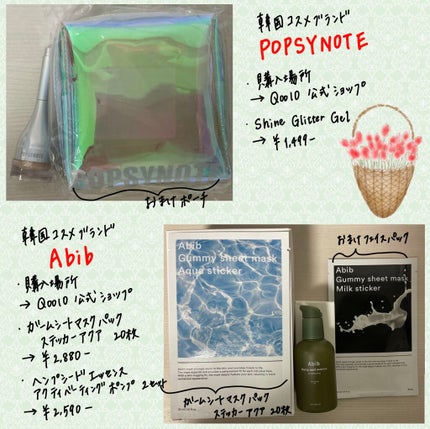 韓国コスメブランド
POPSYNOTE
・購入場所
→ Qoo10 公式ショップ
・Shine Glitter Gel
→ ¥1,499-
POPSYNOTE
おまけポーチ
韓国コスメブランド
Abib
・購入場所
→ Qoo10 公式ショップ
・ガムシートマスクパック
ステッカーアクア 10枚
→ ¥2,880-
・ヘンプシード エッセンス
アクティベーティング ポンプ 2セット
→ ¥2,590-
おまけフェイスパック
Abib
Gummy sheet mask
Aqua sticker
Abib
Gummy sheet mask
Milk sticker
Abib
ガムシートマスクパック
ステッカーアクア 10枚